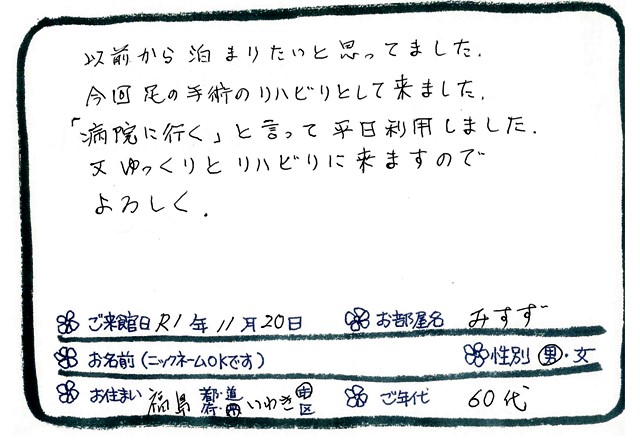 以前から泊まりたいと思ってました.
今回足の手術のリハビリとして来ました.
「病院に行く」と言って平日利用しました.
又ゆっくりとリハビリに来ますので
よろしく.
ご来館日 R1年11月20日 お部屋名 みすず
お名前(ニックネームOKです) 性別 男・女
お住まい 福島 都・道・府・県 いわき 市区 ご年代 60代